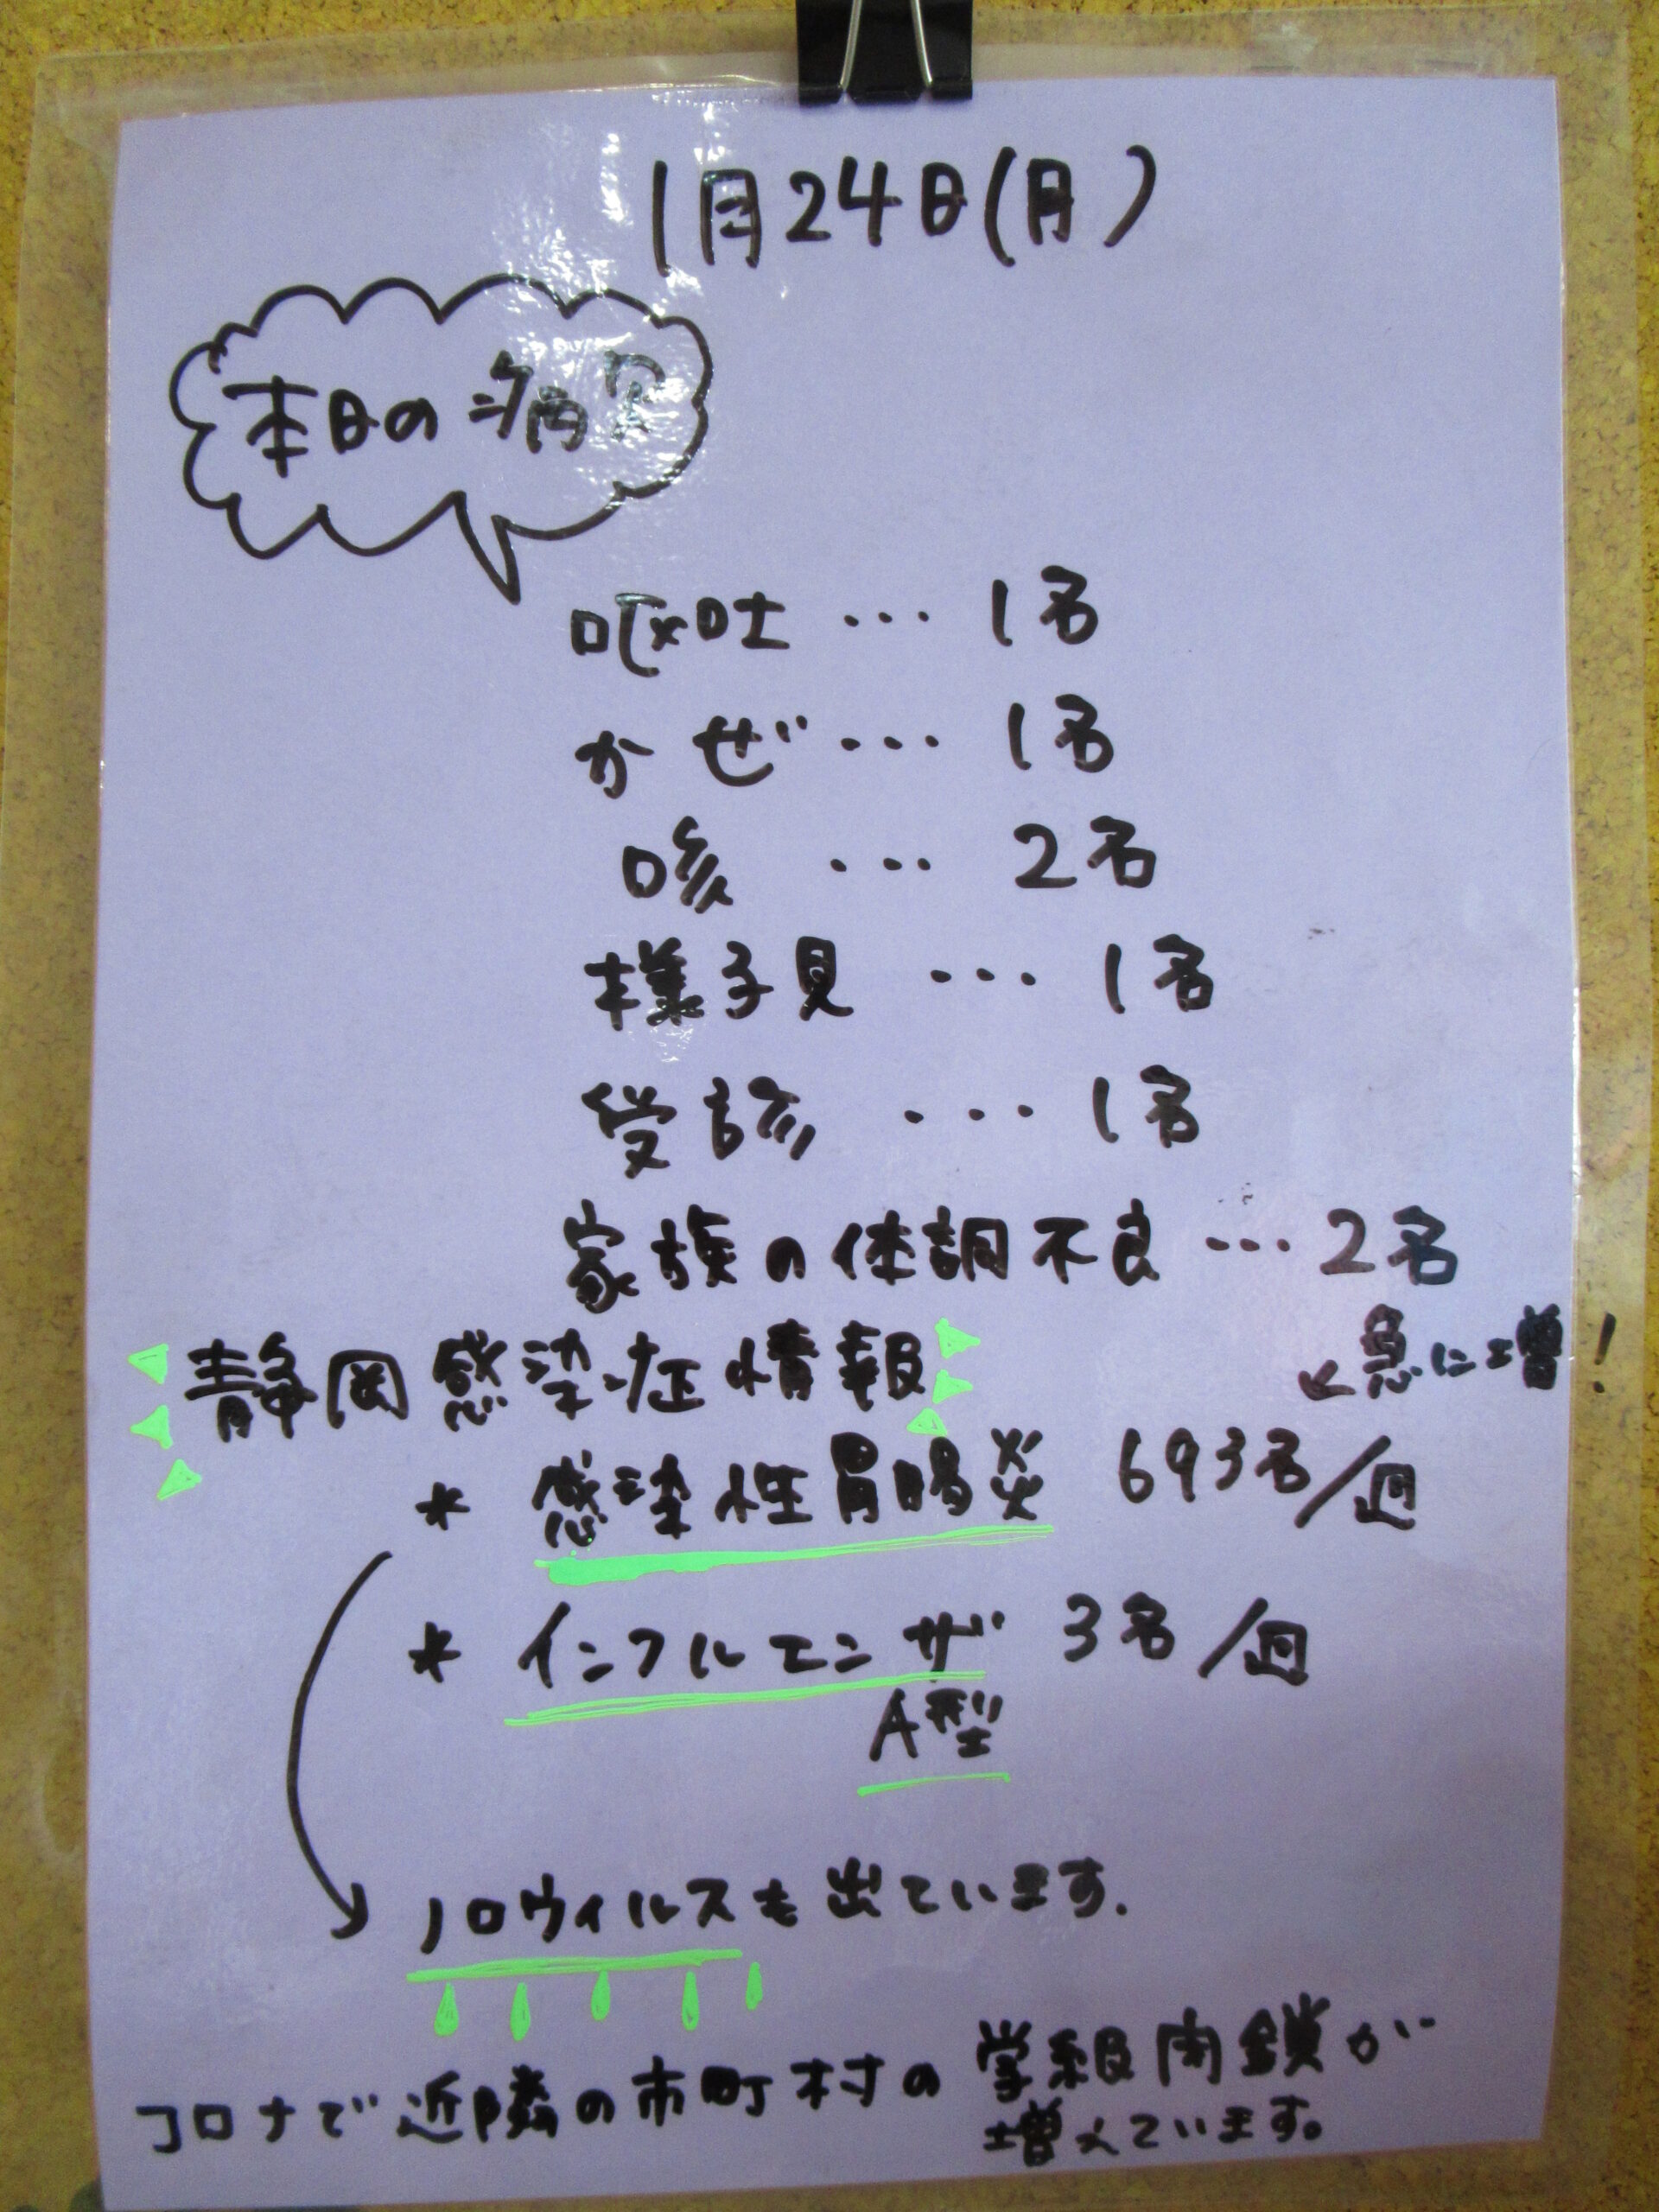 1月24日(月)
本日の病欠
嘔吐 … 1名
かぜ … 1名
咳 … 2名
様子見 … 1名
受診 … 1名
家族の体調不良 … 2名
静岡感染症情報
↙急に増!
* 感染性胃腸炎 693名/週
* インフルエンザ 3名/週
A型
ノロウィルスも出ています.
コロナで近隣の市町村の学級閉鎖が
増えています。